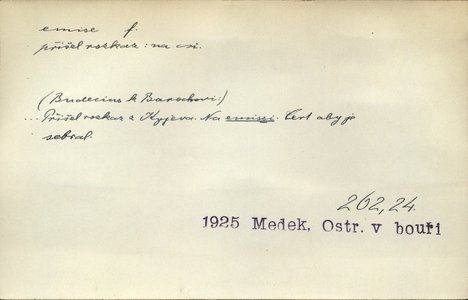 emise f.
přišel rozkaz: na csi.
(Budecius k Barochovi:)
... Přišel rozkaz z Kyjeva. Na emisi. Čert aby je
sebral.
262,24.
1925 Medek, Ostr. v bouři